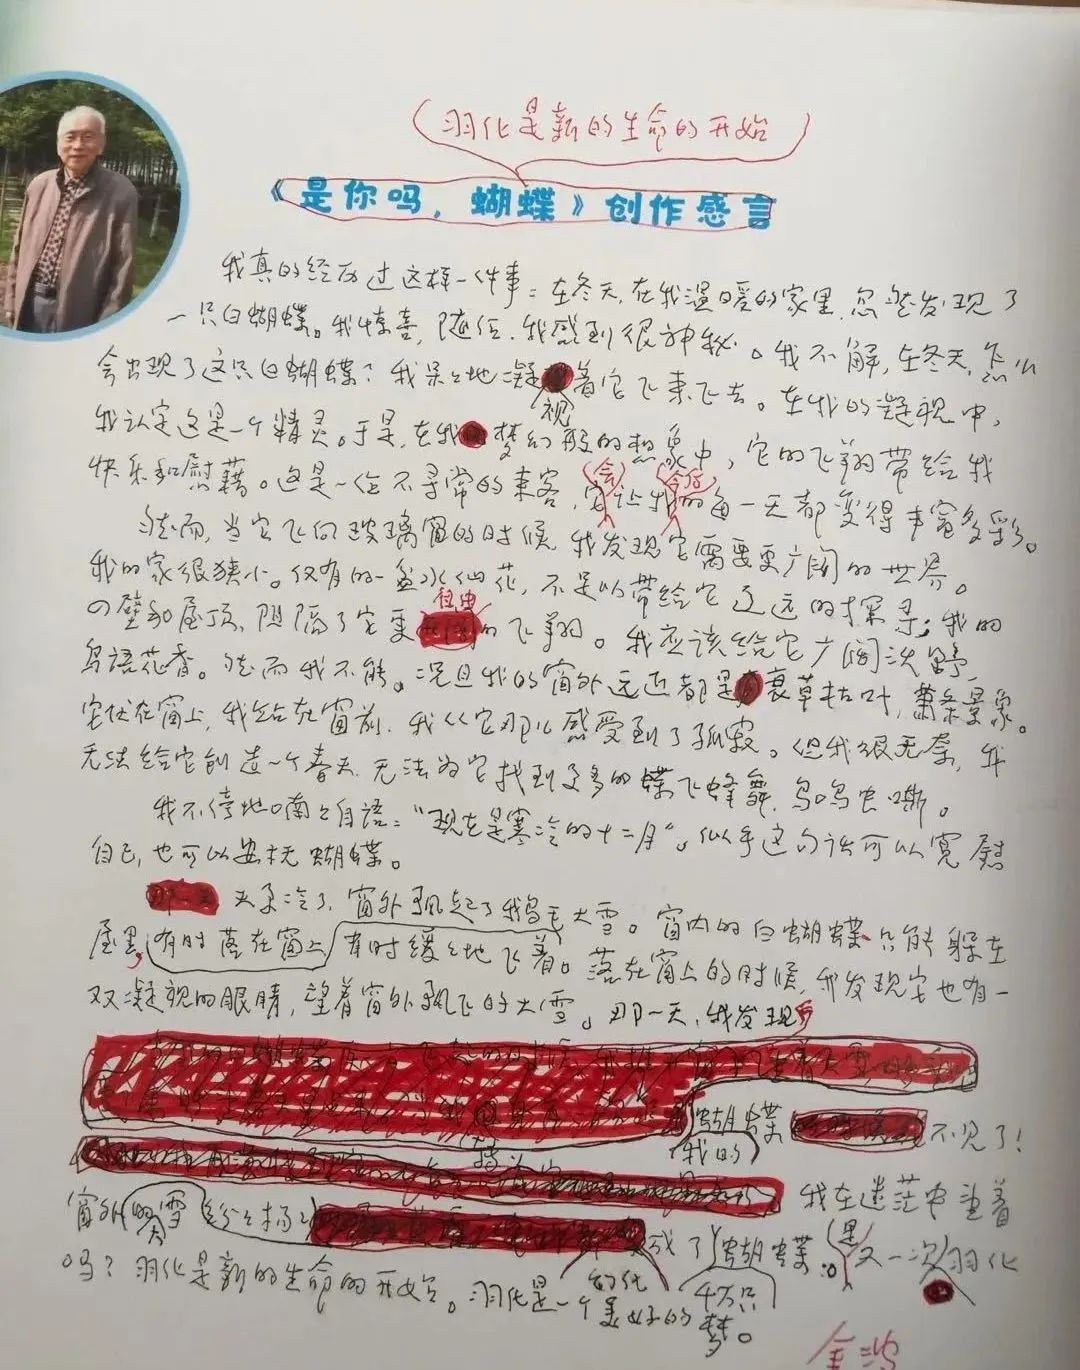 羽化是新的生命的开始
《是你吗，蝴蝶》创作感言
我真的经历过这样一件事：在冬天，在我温暖的家里，忽然发现了
一只白蝴蝶。我惊喜，随后，我感到很神秘。我不解，在冬天，怎么
会出现了这只白蝴蝶？我呆呆地凝视着它飞来飞去。在我的凝视中，
我认定这是一个精灵。于是，在我梦幻般的想象中，它的飞翔带给我
快乐和慰藉。这是一位不寻常的来客，它会让我今后的每一天都变得丰富多彩。
然而，当它飞向玻璃窗的时候，我发现它需要更广阔的世界。
我的家很狭小。仅有的一盆水仙花，不足以带给它辽远的探寻；我的
四壁和屋顶，阻隔了它更自由的飞翔。我应该给它广阔沃野，
鸟语花香。然而我不能。况且我的窗外远近都是衰草枯叶，萧条景象。
它伏在窗上，我站在窗前，我从它那儿感受到了孤寂。但我很无奈，我
无法给它创造一个春天，无法为它找到更多的蝶飞蜂舞，鸟鸣虫嘶。
我不停地喃喃自语：“现在是寒冷的十二月”。似乎这句话可以宽慰
自己，也可以安抚蝴蝶。
天气冷了，窗外飘起了鹅毛大雪。窗内的白蝴蝶只能躲在
屋里，有时落在窗上，有时缓缓地飞着。落在窗上的时候，我发现它也有一
双凝视的眼睛，望着窗外飘飞的大雪。那一天，我发现
我的蝴蝶不见了！
我在迷茫中望着
窗外的大雪纷纷扬扬
幻化成了千万只蝴蝶。是又一次羽化
吗？羽化是新的生命的开始。羽化是一个美好的梦。
金波